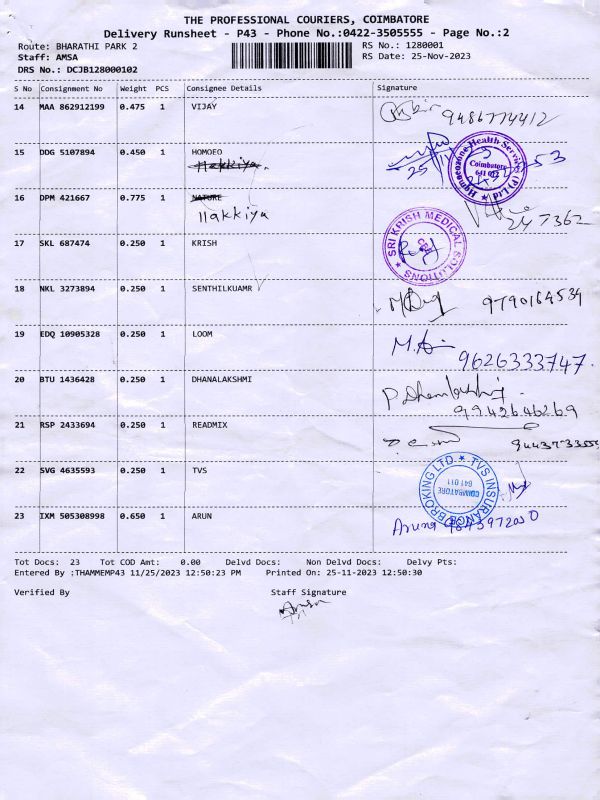 THE PROFESSIONAL COURIERS, COIMBATORE
Delivery Runsheet - P43 - Phone No.:0422-3505555 - Page No.:2
Route: BHARATHI PARK 2 RS No.: 1280001
Staff: AMSA RS Date: 25-Nov-2023
DRS No.: DCJB128000102
S No Consignment No Weight PCS Consignee Details Signature
14 MAA 862912199 0.475 1 VIJAY 9486774412
15 DDG 5107894 0.450 1 HOMOEO
Hakkiya
25/11
Homoeozone Health Services (P) Ltd
Coimbatore
641 012
16 DPM 421667 0.775 1 NATURE
Hakkiya
247362
17 SKL 687474 0.250 1 KRISH
SRI KRISH MEDICAL SOLUTIONS
18 NKL 3273894 0.250 1 SENTHILKUAMR 9790164534
19 EDQ 10905328 0.250 1 LOOM
9626333747.
20 BTU 1436428 0.250 1 DHANALAKSHMI P. Dhanalakshmi
9942646269
21 RSP 2433694 0.250 1 READMIX
22 SVG 4635593 0.250 1 TVS
TVS INSURANCE BROKING LTD.
COIMBATORE
641 011
23 IXM 505308998 0.650 1 ARUN
Aruna
Tot Docs: 23 Tot COD Amt: 0.00 Delvd Docs: Non Delvd Docs: Delvy Pts:
Entered By ;THAMMEMP43 11/25/2023 12:50:23 PM Printed On: 25-11-2023 12:50:30
Verified By Staff Signature
Amsa